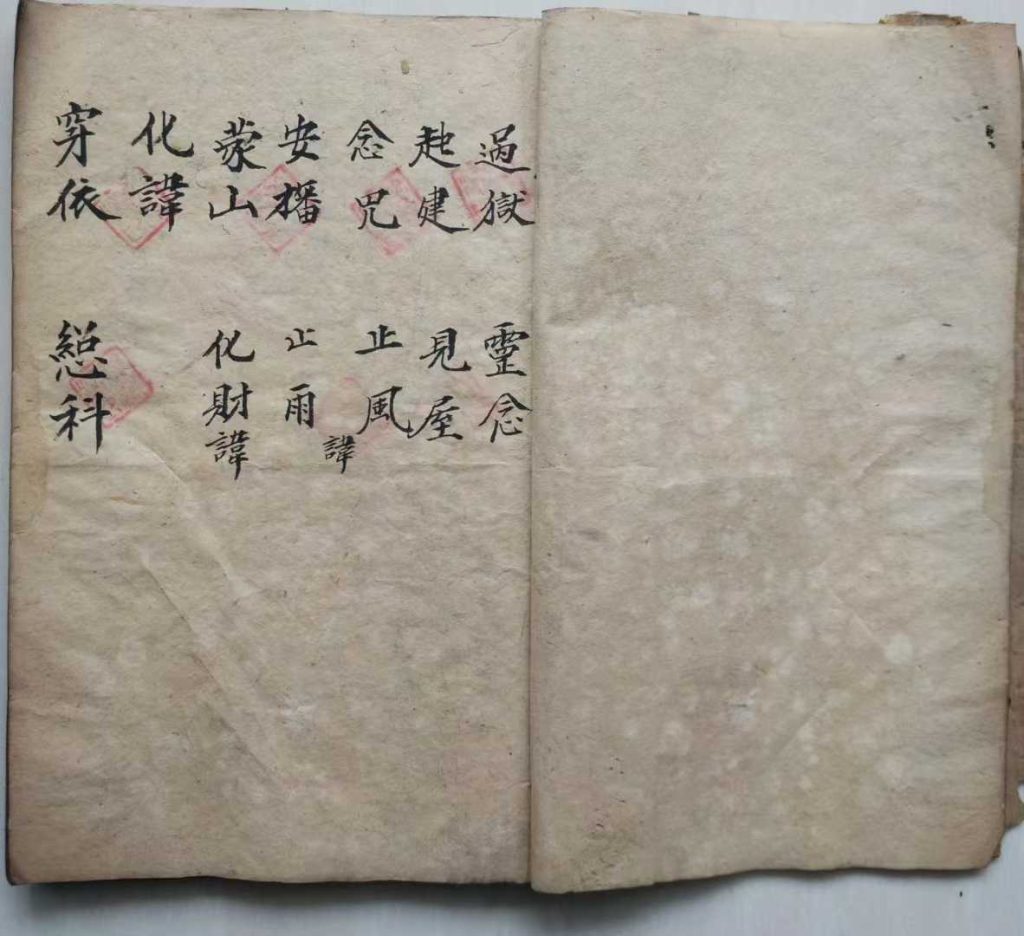 過獄　靈念
起建　見屋
念咒　止風
諱
安播　止雨
蒙山　化財諱
化諱
穿依　總科